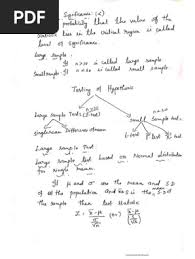 Significance: (α)
probability that the value of the
lies in the critical region is called
level of significance.
Large sample: If n>30 is called large sample.
Small sample: If n<30 is called small sample.
Testing of Hypothesis
n≥30
n<30
Large Sample Test (Z-test)
Small Sample test
single mean Difference of mean
Large Sample Test:
Large Sample test based on Normal distribution
for single mean.
If μ and σ are the mean and S.D
of the population and x̄ is the
the sample then test statistic
Z = x̄-μ / σ/√n (or) x̄-μ / (s/√n)